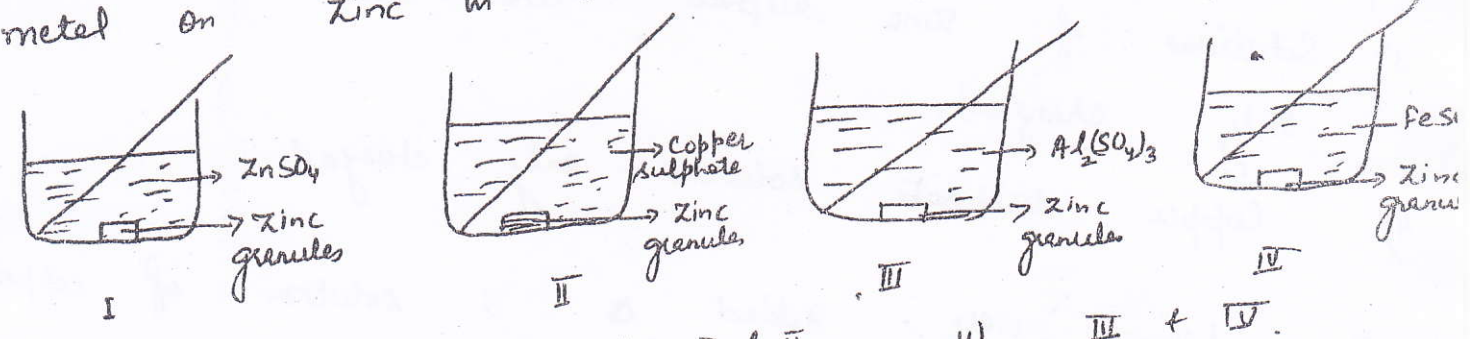 metel on Zinc in
ZnSO4
Zinc
granules
I
Copper
sulphete
Zinc
granules
II
Al2(SO4)3
Zinc
granules
III
FeS
Zinc
granu
IV
III + IV.